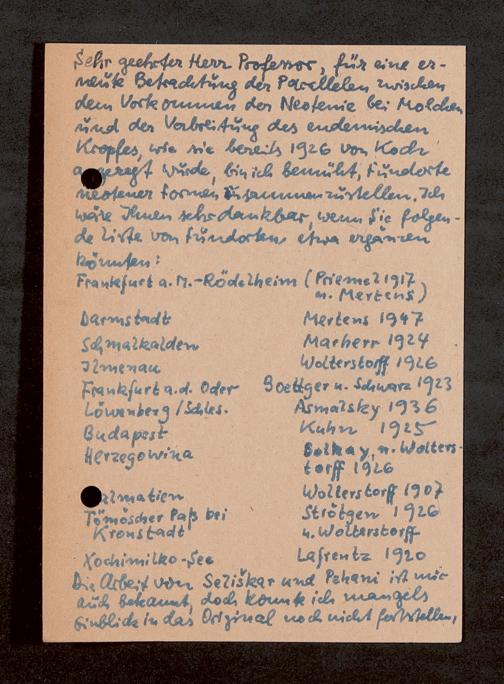 Sehr geehrter Herr Professor, für eine er-
neute Betrachtung der Parellelen zwischen
dem Vorkommen der Neotenie bei Molchen
und der Verbreitung des endemischen
Kropfes, wie sie bereits 1926 von Koch
angeregt wurde, bin ich bemüht, Fundorte
neotener Formen zusammenzustellen. Ich
wäre Ihnen sehr dankbar, wenn Sie folgen-
de Liste von Fundorten etwa ergänzen
könnten:
Frankfurt a. M.-Rödelheim (Priemel 1917
u. Mertens)
Darmstadt Mertens 1947
Schmalkalden Marherr 1924
Ilmenau Wolterstorff 1926
Frankfurt a.d. Oder Boettger u. Schwarz 1923
Löwenberg/Schles. Asmalsky 1936
Budapest Kuhn 1925
Herzegowina Bolkay, u. Wolters-
torff 1926
Dalmatien Wolterstorff 1907
Tömöscher Paß bei Strötgen 1926
Kronstadt u. Wolterstorff
Xochimilko-See Lafrentz 1920
Die Arbeit von Seliškar und Pehani ist mir
auch bekannt, doch konnte ich mangels
Einblick in das Original noch nicht feststellen,